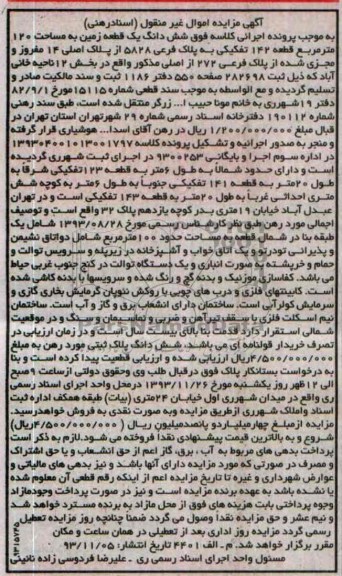 آگهی مزایده اموال غیر منقول (اسنادرهنی)
به موجب پرونده اجرائی کلاسه فوق شش دانگ یک قطعه زمین به مساحت ۱۲۰
مترمربع قطعه ۱۴۲ تفکیکی به پلاک فرعی ۵۸۲۸ از پلاک اصلی ۱۴ مفروز و
مجزی شده از پلاک فرعی ۲۷۲ از اصلی مذکور واقع در بخش ۱۲ ناحیه خانی
آباد که ذیل ثبت ۲۸۲۶۹۸ صفحه ۵۵۰ دفتر ۱۱۸۶ ثبت و سند مالکیت صادر و
تسلیم گردیده و مع الواسطه به موجب سند قطعی شماره ۱۵۱۱۵ مورخ ۸۲/۹/۱
دفتر ۱۹ شهرری به خانم مونا حبیب ا... زرگر منتقل شده است، طبق سند رهنی
شماره ۱۹۰۱۱۲ دفترخانه اسناد رسمی شماره ۲۹ شهرتهران استان تهران در
قبال مبلغ ۱/۲۰۰/۰۰۰/۰۰۰ ریال در رهن آقای اسدا... هوشیاری قرار گرفته
و منجر به صدور اجرائیه و تشکیل پرونده کلاسه ۱۳۹۳۰۴۰۰۱۰۱۳۰۰۱۷۹۷
در اداره سوم اجرا و بایگانی ۹۳۰۰۲۵۳ در اجرای ثبت شهرری گردیده
است و دارای حدود شمالاً به طول ۶متر به قطعه ۱۲۳ تفکیکی شرقاً به
طول ۲۰متر به قطعه ۱۴۱ تفکیکی جنوباً به طول ۶متر به کوچه شش
متری احداثی غرباً به طول ۲۰متر به قطعه ۱۴۳ تفکیکی است و در تهران
عبدل آباد خیابان ۱۹متری بدر کوچه یازدهم پلاک ۳۲ واقع است و توصیف
اجمالی مورد رهن طبق نظر کارشناس رسمی مورخ ۱۳۹۳/۰۸/۲۸ شامل یک
طبقه بنا در شمال قطعه به مساحت حدود ۱۰۰مترمربع شامل دواتاق نشیمن
و پذیرائی تودرتو و یک اتاق خواب و آشپزخانه در زیرپله و سرویس توالت و
حمام و خرپشته به صورت انباری و یک دستگاه توالت در کنج جنوب غربی حیاط
می باشد. کفسازی موزئیک و بدنه گچ و رنگ شده و سرویسها با بدنه کاشی شده
است. کابینتهای فلزی و درب های چوبی با روکش نئوپان گرمایش بخاری گازی و
سرمایش کولرآبی است. ساختمان دارای انشعاب برق و گاز و آب است. ساختمان
نیم اسکلت فلزی با سقف تیرآهن و ضربی و نماسیمان و سنگ و در موقعیت
شمالی استقرار دارد قدمت بنا بالای بیست سال است و در زمان ارزیابی در
تصرف خریدار قولنامه ای می باشد. شش دانگ پلاک ثبتی مورد رهن به مبلغ
۴/۵۰۰/۰۰۰/۰۰۰ریال ارزیابی شده و ارزیابی قطعیت پیدا کرده است و بنا
به درخواست بستانکار پلاک فوق درقبال طلب وی وحقوق دولتی ازساعت ۹صبح
الی ۱۲ ظهر روز یکشنبه مورخ ۱۳۹۳/۱۱/۲۶ درمحل واحد اجرای اسناد رسمی
ری واقع در میدان شهرری اول خیابان ۲۴متری (بیات) طبقه همکف اداره ثبت
اسناد واملاک شهرری ازطریق مزایده وبه صورت نقدی به فروش خواهدرسید.
مزایده ازمبلغ چهارمیلیاردو پانصدمیلیون ریال (۴/۵۰۰/۰۰۰/۰۰۰ریال)
شروع و به بالاترین قیمت پیشنهادی نقداً فروخته می شود.لازم به ذکر است
پرداخت بدهی های مربوط به آب ، برق، گاز اعم از حق انشعاب و یا حق اشتراک
و مصرف در صورتی که مورد مزایده دارای آنها باشد و نیز بدهی های مالیاتی و
عوارض شهرداری و غیره تا تاریخ مزایده اعم از اینکه رقم قطعی آن معلوم شده
یا نشده باشد به عهده برنده مزایده است و نیز در صورت پرداخت وجودمازاد
وجوه پرداختی بابت هزینه های فوق از محل مازاد به برنده مسترد خواهد شد
و نیم عشر و حق مزایده نقداً وصول می گردد ضمناً چنانچه روز مزایده تعطیل
رسمی گردد مزایده روز اداری بعد از تعطیلی در همان ساعت و مکان
مقرر برگزار خواهد شد. م ـ الف ۴۴۰۱ تاریخ انتشار: ۹۳/۱۱/۰۵
مسئول واحد اجرای اسناد رسمی ری ـ علیرضا فردوسی زاده نائینی